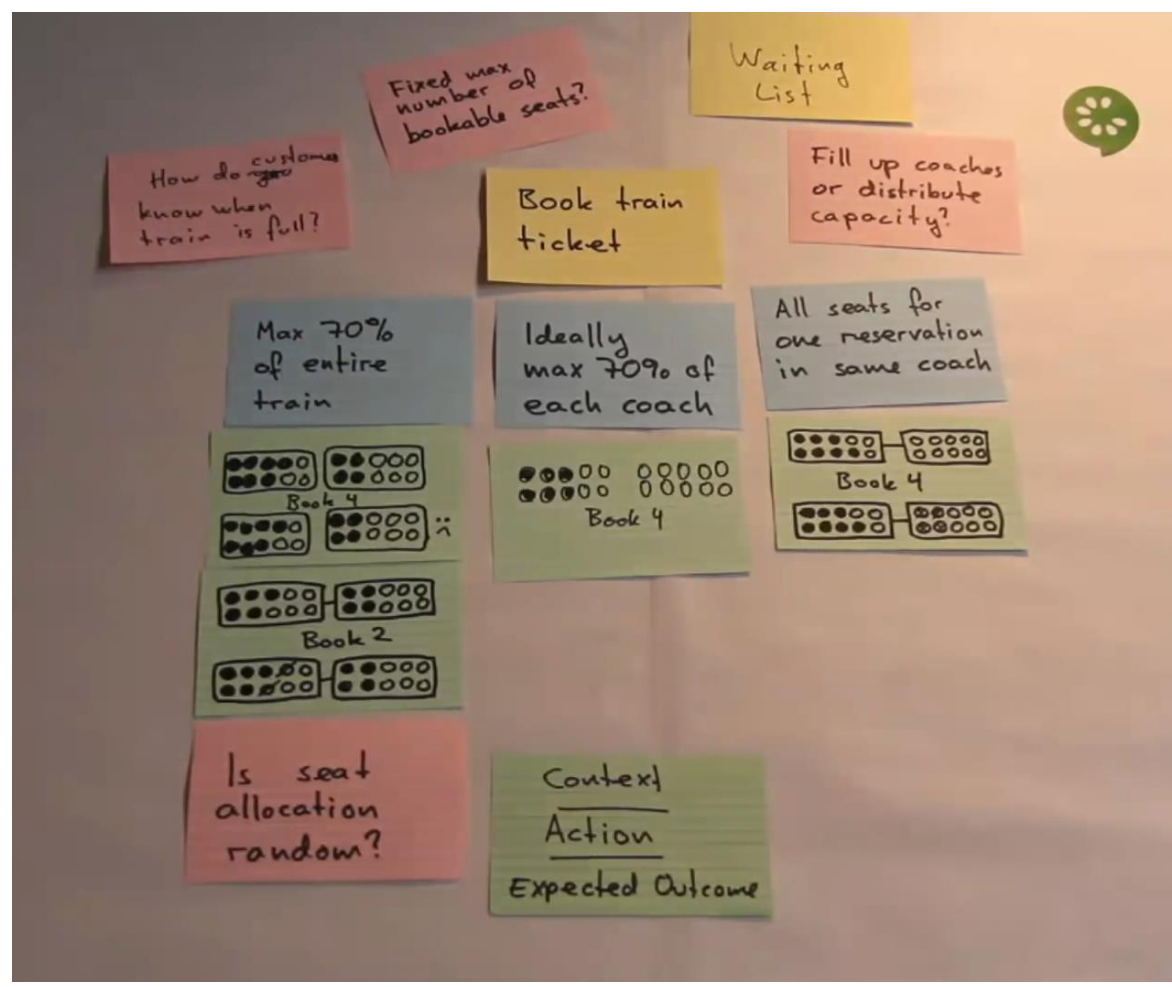 Fixed max
number of
bookable seats?
Waiting
List
How do customer
know when
train is full?
Book train
ticket
Fill up coaches
or distribute
capacity?
Max 70%
of entire
train
Ideally
max 70% of
each coach
All seats for
one reservation
in same coach
Book 4
Book 4
Book 4
Book 2
Is seat
allocation
random?
Context
Action
Expected Outcome